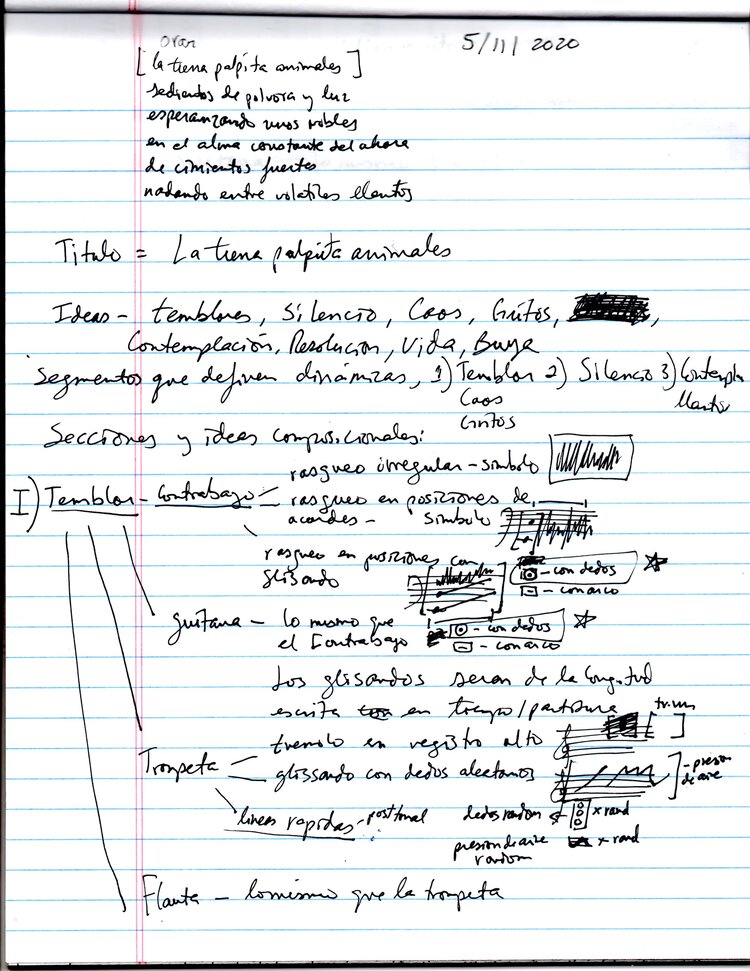 orar
5/11/2020
[la tierra palpita animales]
sedientos de polvora y luz
esperanzando unos nobles
en el alma constante del ahora
de cimientos fuertes
nadando entre volatiles
Titulo = La tierra palpita animales
Ideas - temblores, Silencio, Caos, Gritos,
Contemplación, Resolucion, Vida,
Segmentos que definen dinámizas, 1) Temblor 2) Silencio 3) Contempla
Caos
Gritos
Secciones y ideas composicionales:
rasgueo irregular - simbolo
I) Temblor - Contrabajo - rasgueo en posiciones de
acordes - simbolo
rasgueo en posiciones con
glisando
- con dedos
- con arco
guitarra - lo mismo que
el Contrabajo
- con dedos
- con arco
Los glisandos seran de la longitud
escrita en tiempo/partitura
tremolo en registro alto
Trompeta - glissando con dedos aleatorios
- presion
de aire
lineas rapidas - posttonal
dedos random
x rand
presion de aire
random
x rand
Flauta - lo mismo que la trompeta